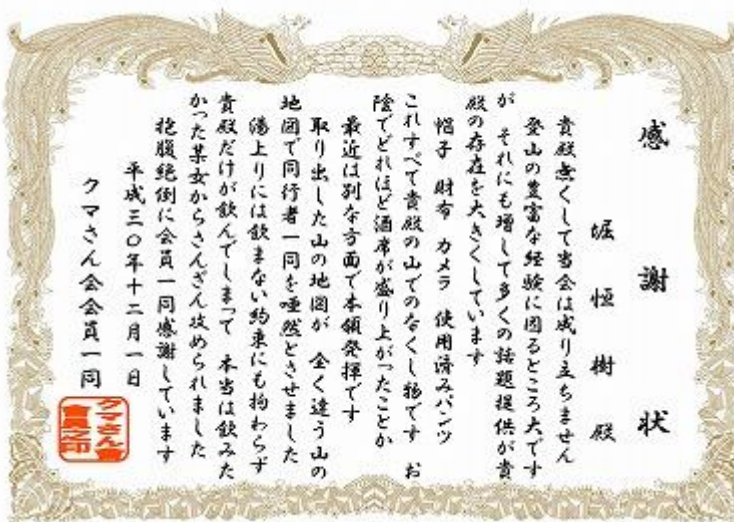 感謝状
堀恒樹殿
貴殿無くして当会は成り立ちません
登山の豊富な経験に因るところ大です
が それにも増して多くの話題提供が貴
殿の存在を大きくしています
帽子 財布 カメラ 使用済みパンツ
これすべて貴殿の山でのなくし物です お
陰でどれほど酒席が盛り上がったことか
最近は別な方面で本領発揮です
取り出した山の地図が 全く違う山の
地図で同行者一同を唖然とさせました
湯上りには飲まない約束にも拘わらず
貴殿だけが飲んでしまって 本当は飲みた
かった某女からさんざん攻められました
抱腹絶倒に会員一同感謝しています
平成三〇年十二月一日
クマさん会会員一同
クマさん會
會員之印